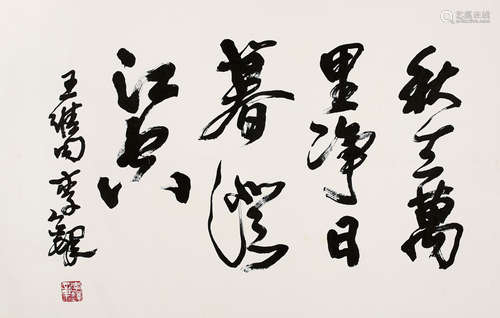 秋天萬
里净日
暮澄
江空
王維句 李鐸